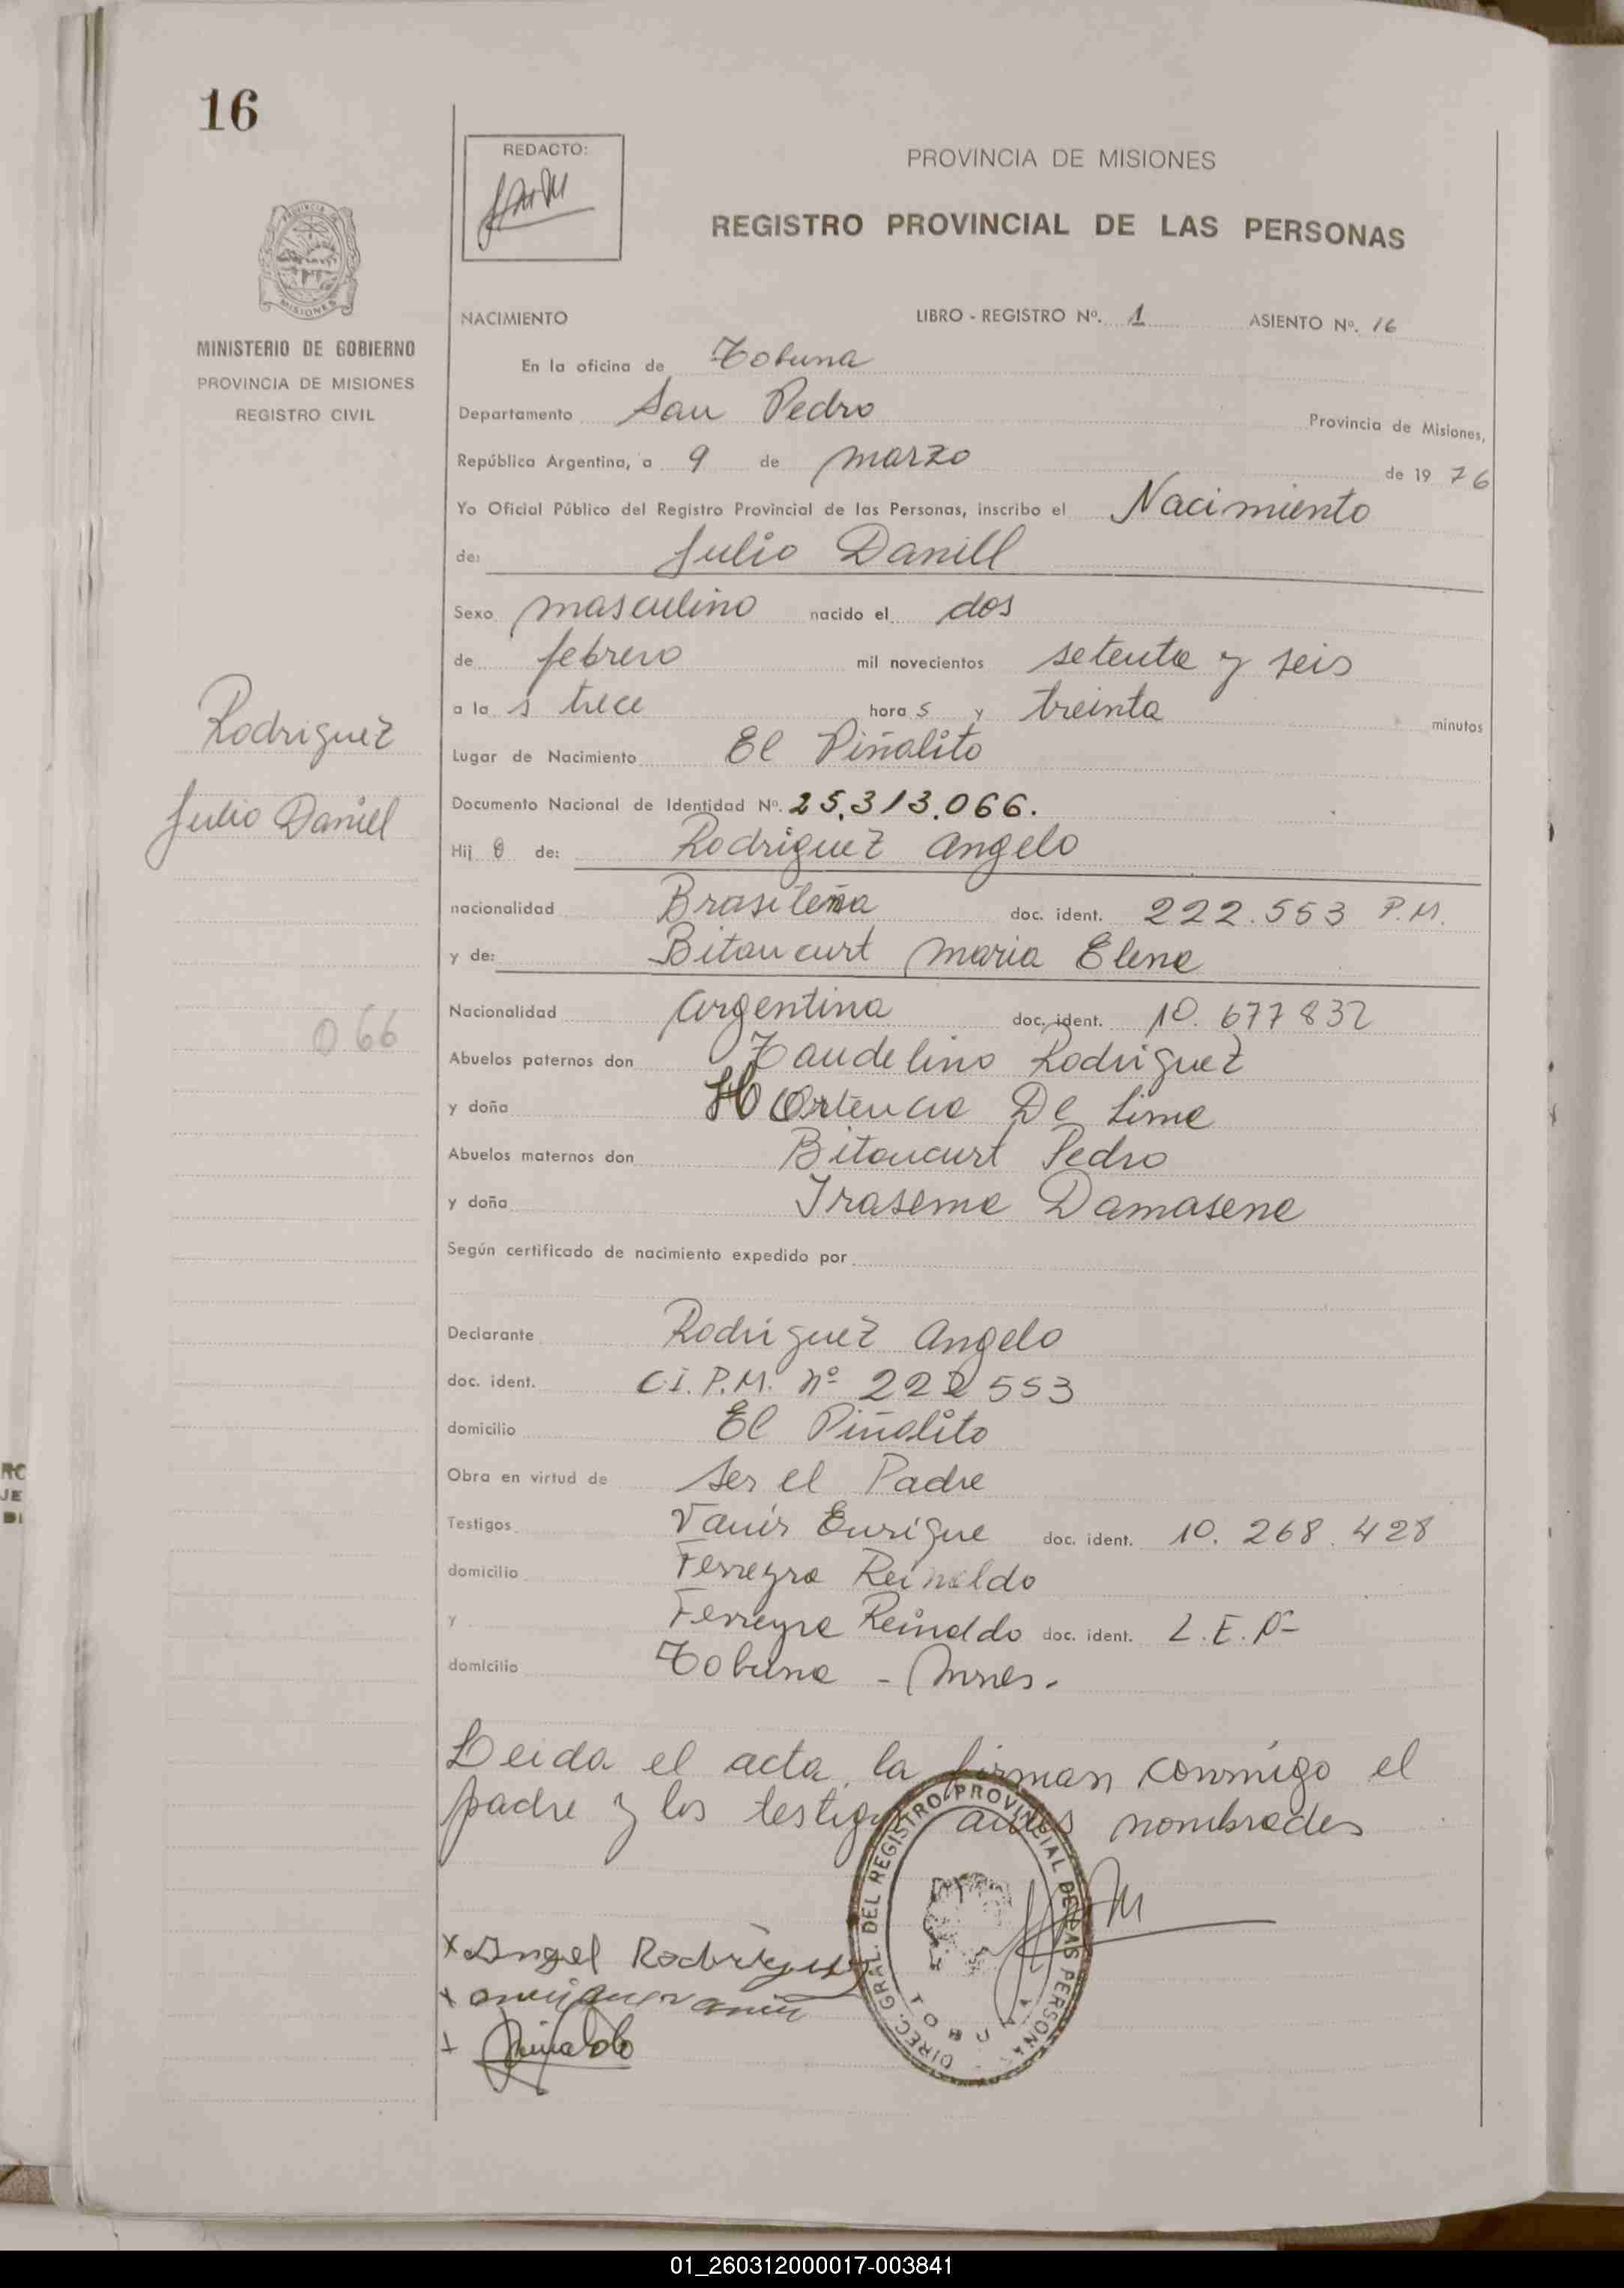 16
REDACTO:
PROVINCIA DE MISIONES
REGISTRO PROVINCIAL DE LAS PERSONAS
MINISTERIO DE GOBIERNO
PROVINCIA DE MISIONES
REGISTRO CIVIL
NACIMIENTO LIBRO - REGISTRO Nº. 1 ASIENTO Nº. 16
En la oficina de Tobuna
Departamento San Pedro Provincia de Misiones,
República Argentina, a 9 de marzo de 19 76
Yo Oficial Público del Registro Provincial de las Personas, inscribo el Nacimiento
de: Julio Daniel
Sexo masculino nacido el dos
de febrero mil novecientos setenta y seis
a la s trece hora s y treinta minutos
Rodriguez
Julio Daniel
066
Lugar de Nacimiento El Piñalito
Documento Nacional de Identidad Nº. 25.313.066.
Hij o de: Rodriguez Angelo
nacionalidad Brasileña doc. ident. 222.553 P.M.
y de: Bitancurt Maria Elena
Nacionalidad Argentina doc. ident. 10.677832
Abuelos paternos don Taudelino Rodriguez
y doña Hortencia De Lima
Abuelos maternos don Bitancurt Pedro
y doña Irasema Damasena
Según certificado de nacimiento expedido por
Declarante Rodriguez Angelo
doc. ident. C.I. P.M. nº 222553
domicilio El Piñalito
Obra en virtud de ser el Padre
Testigos Vanis Enrique doc. ident. 10.268.428
domicilio Ferreyra Reinaldo
y Ferreyra Reinaldo doc. ident. L.E. Nº
domicilio Tobuna - Mnes.
Leida el acta, la firman conmigo el
padre y los testigos antes nombrados
DIREC. GRAL. DEL REGISTRO PROVINCIAL DE LAS PERSONAS
TOBUNA
x Angel Rodriguez
x
x Reinaldo
RO
JE
DI
01_260312000017-003841